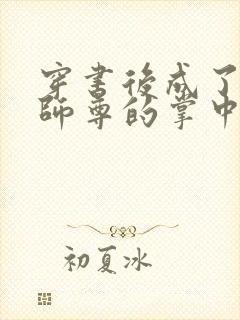 穿書後成了
師尊的掌中
初夏冰